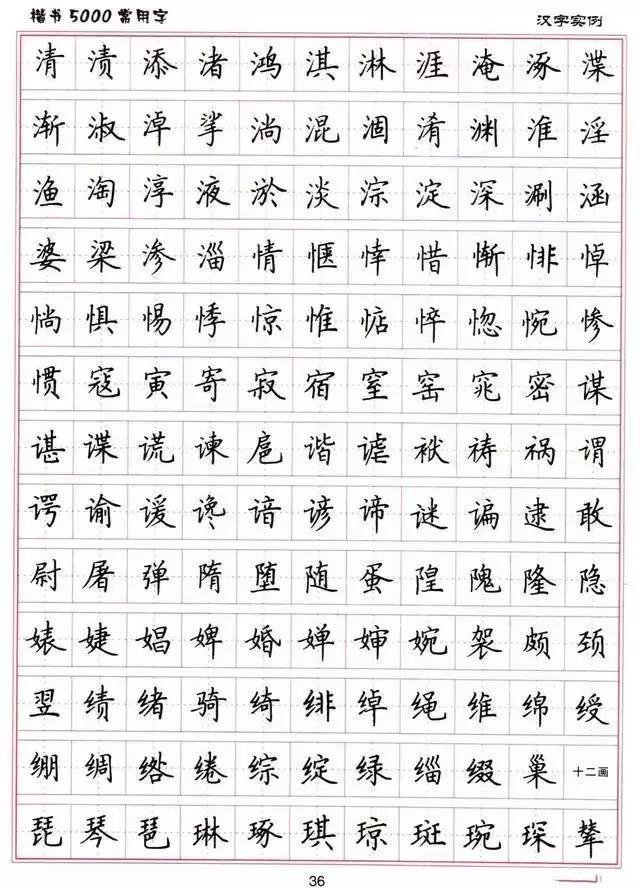 楷书5000常用字 汉字实例
清渍添渚鸿淇淋涯淹涿渫
渐淑淖挲淌混涸淆渊淮淫
渔淘淳液淤淡淙淀深涮涵
婆梁渗淄情惬悻惜惭悱悼
惝惧惕悸惊惟惦悴惚惋惨
惯寇寅寄寂宿窒窑窕密谋
谌谍谎谏扈谐谑袱祷祸谓
谔谕谖谗谙谚谛谜谝逮敢
尉屠弹隋堕随蛋隍隗隆隐
婊婕娼婢婚婵婶婉袈颇颈
翌绩绪骑绮绯绰绳维绵绶
绷绸绺绻综绽绿缁缀巢 十二画
琵琴琶琳琢琪琼斑琬琛辇
36